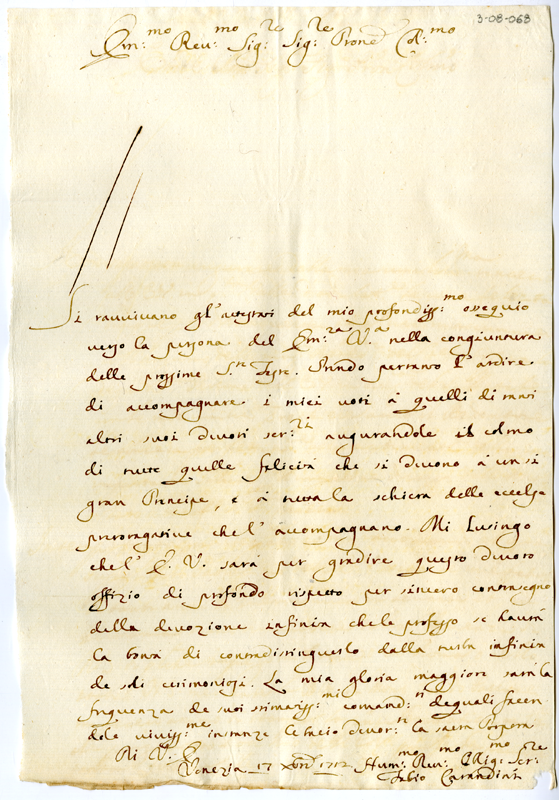 3-08-068
Em:mo Reu:mo Sig:re Sig:re Prone Col:mo
Si ravvivano gl'attestati del mio profondiss:mo ossequio
verso la persona del Em:za V.a nella congiuntura
delle prossime S.te Feste. Prendo pertanto l'ardire
di accompagnare i miei voti à quelli di tanti
altri suoi divoti ser:ri augurandole il colmo
di tutte quelle felicità che si devono à un si
gran Principe, e à tutta la schiera delle eccelse
prerogative che l'accompagnano. Mi Lusingo
che l'E. V. sarà per gradire questo divoto
offizio di profondo rispetto per sincero contrasegno
della devozione infinita che le professo se haurà
la bontà di contradistinguerlo dalla turba infinita
de soli cerimoniosi. La mia gloria maggiore sarà la
frequenza de suoi stimatiss:mi comand:ti de quali facen
dole viviss:me instanze le bacio divot:te la sacra Porpora
Di V. E.
Venezia 17 Xbre 1712 Hum:mo Reu:mo Oblig:mo Ser:re
Fabio Carandini